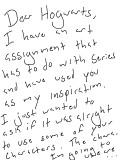 Dear Hogwarts,
I have an art
assignment that
has to do with series
and have used you
as my inspiration.
I just wanted to
ask if it was alright
to use some of your
characters. The chara.
In going to
use are